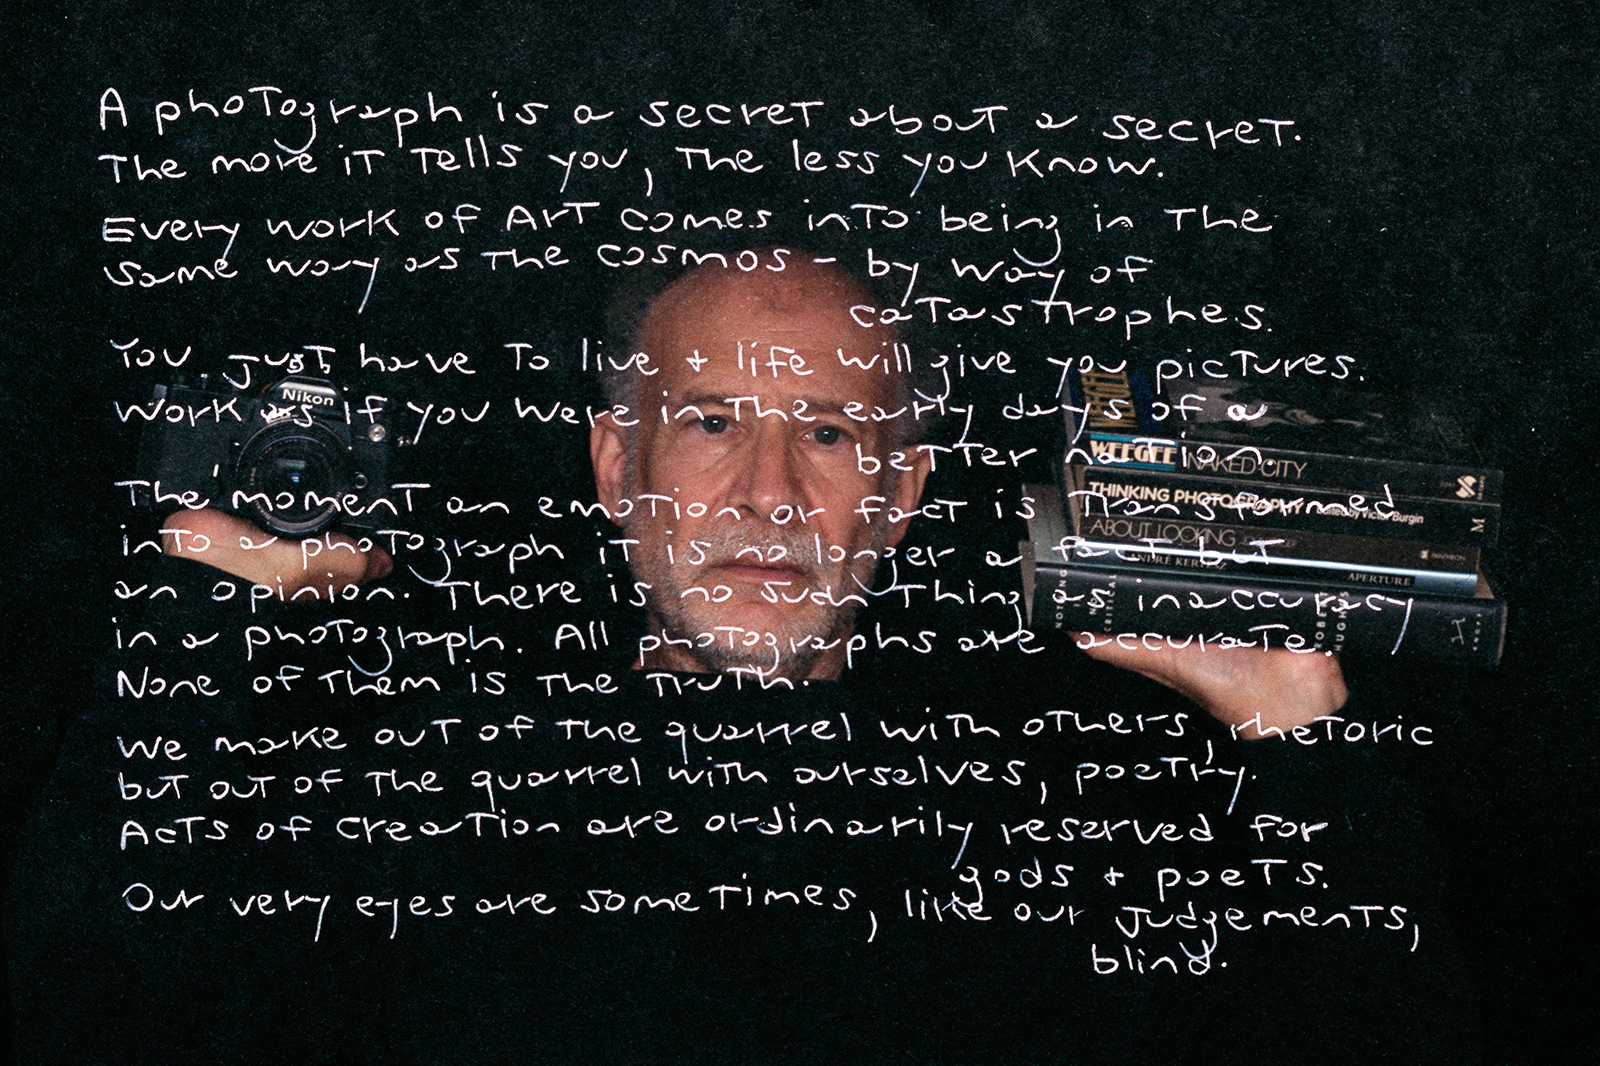 A photograph is a secret about a secret.
The more it tells you, the less you know.
Every work of Art comes into being in the
same way as the cosmos - by way of
catastrophes.
You just have to live + life will give you pictures.
Nikon
Work as if you were in the early days of a
better nation.
WEEGEE NAKED CITY
The moment an emotion or fact is transformed
THINKING PHOTOGRAPHY Edited by Victor Burgin
ABOUT LOOKING
into a photograph it is no longer a fact but
ANDRÉ KERTÉSZ APERTURE
an opinion. There is no such thing as inaccuracy
NOTHING IF NOT CRITICAL ROBERT HUGHES
in a photograph. All photographs are accurate.
None of them is the truth.
We make out of the quarrel with others, rhetoric
but out of the quarrel with ourselves, poetry.
Acts of creation are ordinarily reserved for
gods + poets.
Our very eyes are sometimes, like our judgements,
blind.